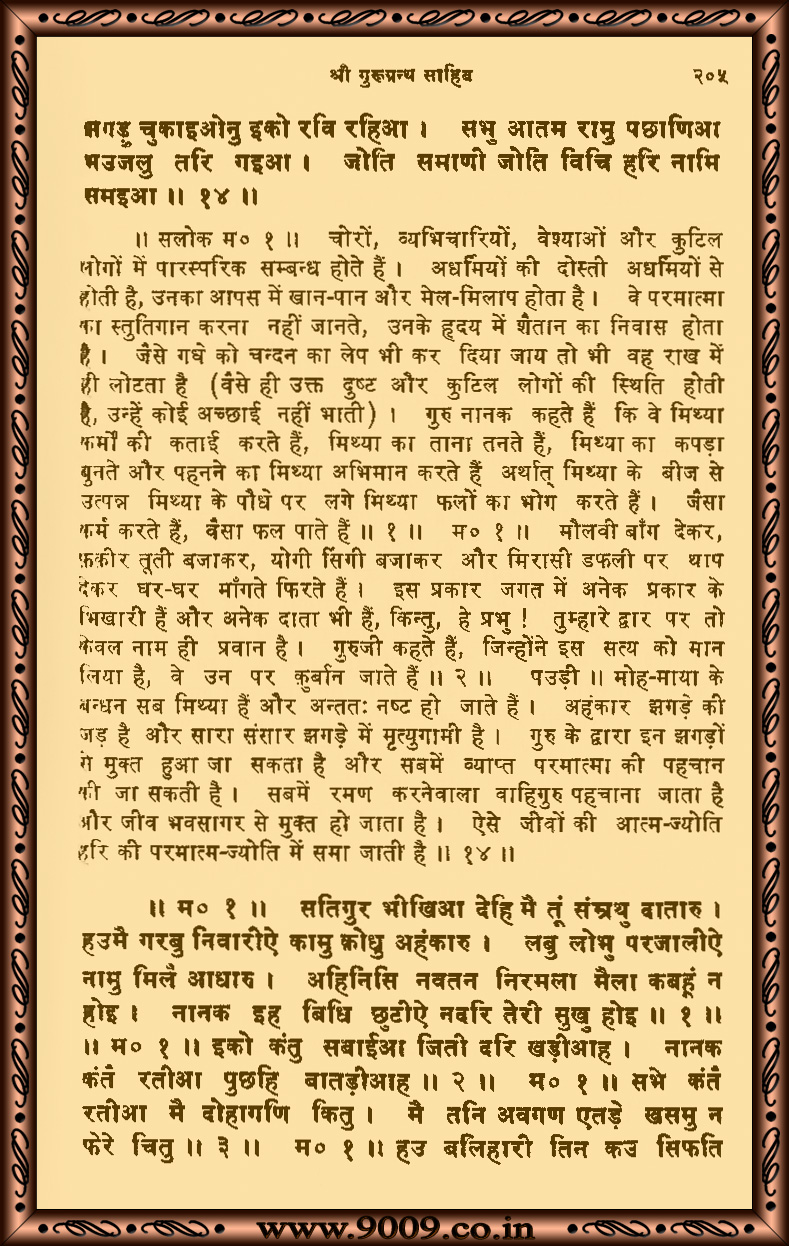 श्री गुरुग्रन्थ साहिब २०५
झगड़ु चुकाइओनु इको रवि रहिआ । सभु आतम रामु पछाणिआ
भउजलु तरि गइआ । जोति समाणी जोति विचि हरि नामि
समइआ ॥ १४ ॥
॥ सलोक म० १ ॥ चोरों, व्यभिचारियों, वेश्याओं और कुटिल
लोगों में पारस्परिक सम्बन्ध होते हैं । अधर्मियों की दोस्ती अधर्मियों से
होती है, उनका आपस में खान-पान और मेल-मिलाप होता है । वे परमात्मा
का स्तुतिगान करना नहीं जानते, उनके हृदय में शैतान का निवास होता
है । जैसे गधे को चन्दन का लेप भी कर दिया जाय तो भी वह राख में
ही लोटता है (वैसे ही उक्त दुष्ट और कुटिल लोगों की स्थिति होती
है, उन्हें कोई अच्छाई नहीं भाती) । गुरु नानक कहते हैं कि वे मिथ्या
कर्मों की कताई करते हैं, मिथ्या का ताना तनते हैं, मिथ्या का कपड़ा
बुनते और पहनने का मिथ्या अभिमान करते हैं अर्थात् मिथ्या के बीज से
उत्पन्न मिथ्या के पौधे पर लगे मिथ्या फलों का भोग करते हैं । जैसा
कर्म करते हैं, वैसा फल पाते हैं ॥ १ ॥ म० १ ॥ मौलवी बाँग देकर,
फ़कीर तूती बजाकर, योगी सिंगी बजाकर और मिरासी डफली पर थाप
देकर घर-घर माँगते फिरते हैं । इस प्रकार जगत में अनेक प्रकार के
भिखारी हैं और अनेक दाता भी हैं, किन्तु, हे प्रभु ! तुम्हारे द्वार पर तो
केवल नाम ही प्रवान है । गुरुजी कहते हैं, जिन्होंने इस सत्य को मान
लिया है, वे उन पर क़ुर्बान जाते हैं ॥ २ ॥ पउड़ी ॥ मोह-माया के
बन्धन सब मिथ्या हैं और अन्ततः नष्ट हो जाते हैं । अहंकार झगड़े की
जड़ है और सारा संसार झगड़े में मृत्युगामी है । गुरु के द्वारा इन झगड़ों
से मुक्त हुआ जा सकता है और सबमें व्याप्त परमात्मा की पहचान
की जा सकती है । सबमें रमण करनेवाला वाहिगुरु पहचाना जाता है
और जीव भवसागर से मुक्त हो जाता है । ऐसे जीवों की आत्म-ज्योति
हरि की परमात्म-ज्योति में समा जाती है ॥ १४ ॥
॥ म० १ ॥ सतिगुर भीखिआ देहि मै तूं संम्रथु दातारु ।
हउमै गरबु निवारीऐ कामु क्रोधु अहंकारु । लबु लोभु परजालीऐ
नामु मिलै आधारु । अहिनिसि नवतन निरमला मैला कबहूं न
होइ । नानक इह बिधि छुटीऐ नदरि तेरी सुखु होइ ॥ १ ॥
॥ म० १ ॥ इको कंतु सबाईआ जिती दरि खड़ीआह । नानक
कंतै रतीआ पुछहि बातड़ीआह ॥ २ ॥ म० १ ॥ सभे कंतै
रतीआ मै दोहागणि कितु । मै तनि अवगण एतड़े खसमु न
फेरे चितु ॥ ३ ॥ म० १ ॥ हउ बलिहारी तिन कउ सिफति
www.9009.co.in